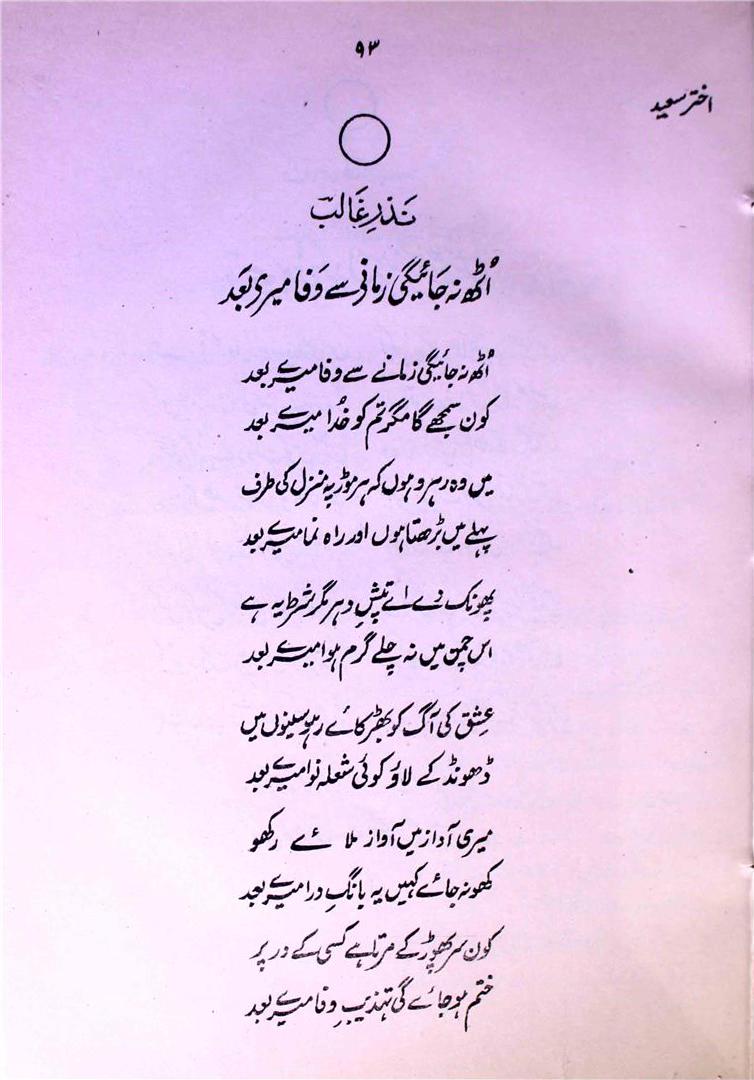 ۹۳
اختر سعید
نذرِ غالب
اُٹھ نہ جائیگی زمانی سے وَفا میری بَعد
اُٹھ نہ جائیگی زمانے سے وفا میرے بعد
کون سمجھے گا مگر تم کو خُدا میرے بعد
میں وہ رہرو ہوں کہ ہر موڑ پہ منزل کی طرف
پہلے میں بڑھتا ہوں اور راہ نما میرے بعد
پھونک دے اے تپشِ دہر مگر شرط یہ ہے
اس چمن میں نہ چلے گرم ہوا میرے بعد
عِشق کی آگ کو بھڑکائے رہو سینوں میں
ڈھونڈ کے لاؤ کوئی شعلہ نوا میرے بعد
میری آواز میں آواز ملائے رکھو
کھو نہ جائے کہیں یہ بانگِ درا میرے بعد
کون سر پھوڑ کے مرتا ہے کسی کے در پر
ختم ہو جائے گی تہذیبِ وفا میرے بعد